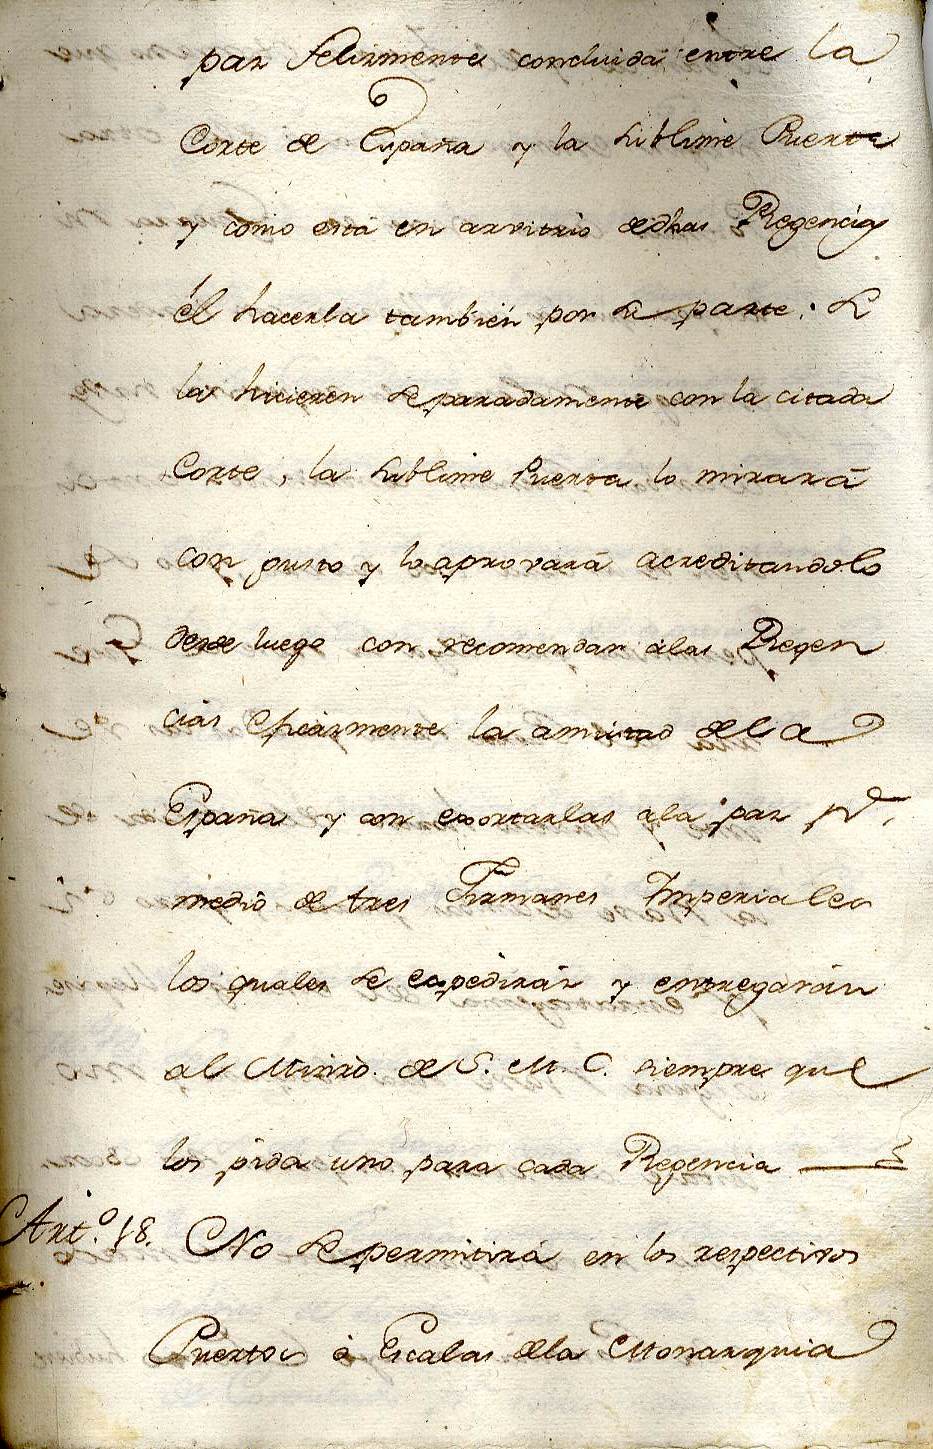 paz felizmente concluida entre la
Corte de España y la sublime Puerta
y como está en arvitrio de dhas Regencias
él hacerla tambien por su parte: si
la hicieren separadamente con la citada
Corte, la sublime Puerta lo mirará
con gusto y lo aprovará acreditandolo
desde luego con recomendar alas Regen
cias eficazmente la amistad de la
España y con exortarlas ala paz pr.
medio de tres Firmanes Imperiales
los quales se expedirán y entregarán
al Minro. de S. M. C. siempre que
los pida uno para cada Regencia
Arto. 18. No se permitirá en los respectivos
Puertos ó Escalas dela Monarquia